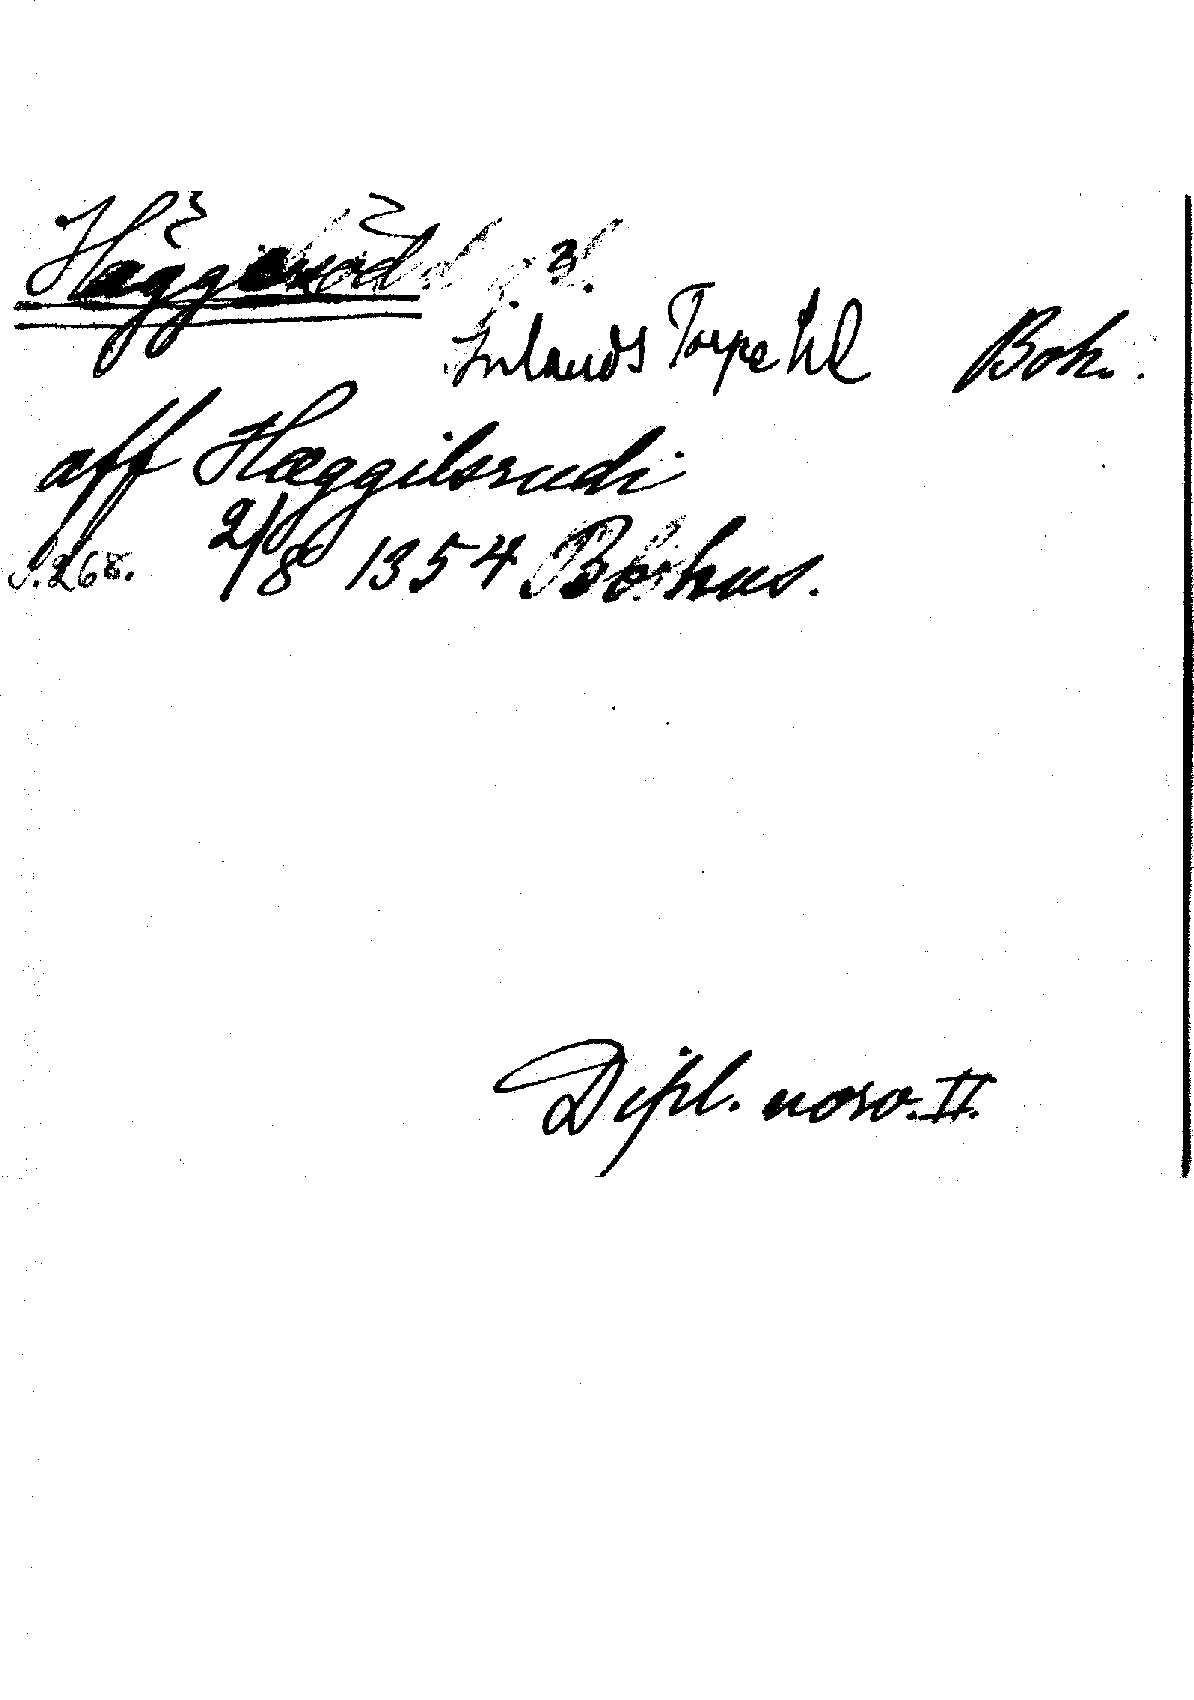 Häggeröd 3.
Inlands Torpe hd Boh.
aff Hæggilsrudi
s. 268. 2/8 1354 Bohus.
Dipl. norv. II.